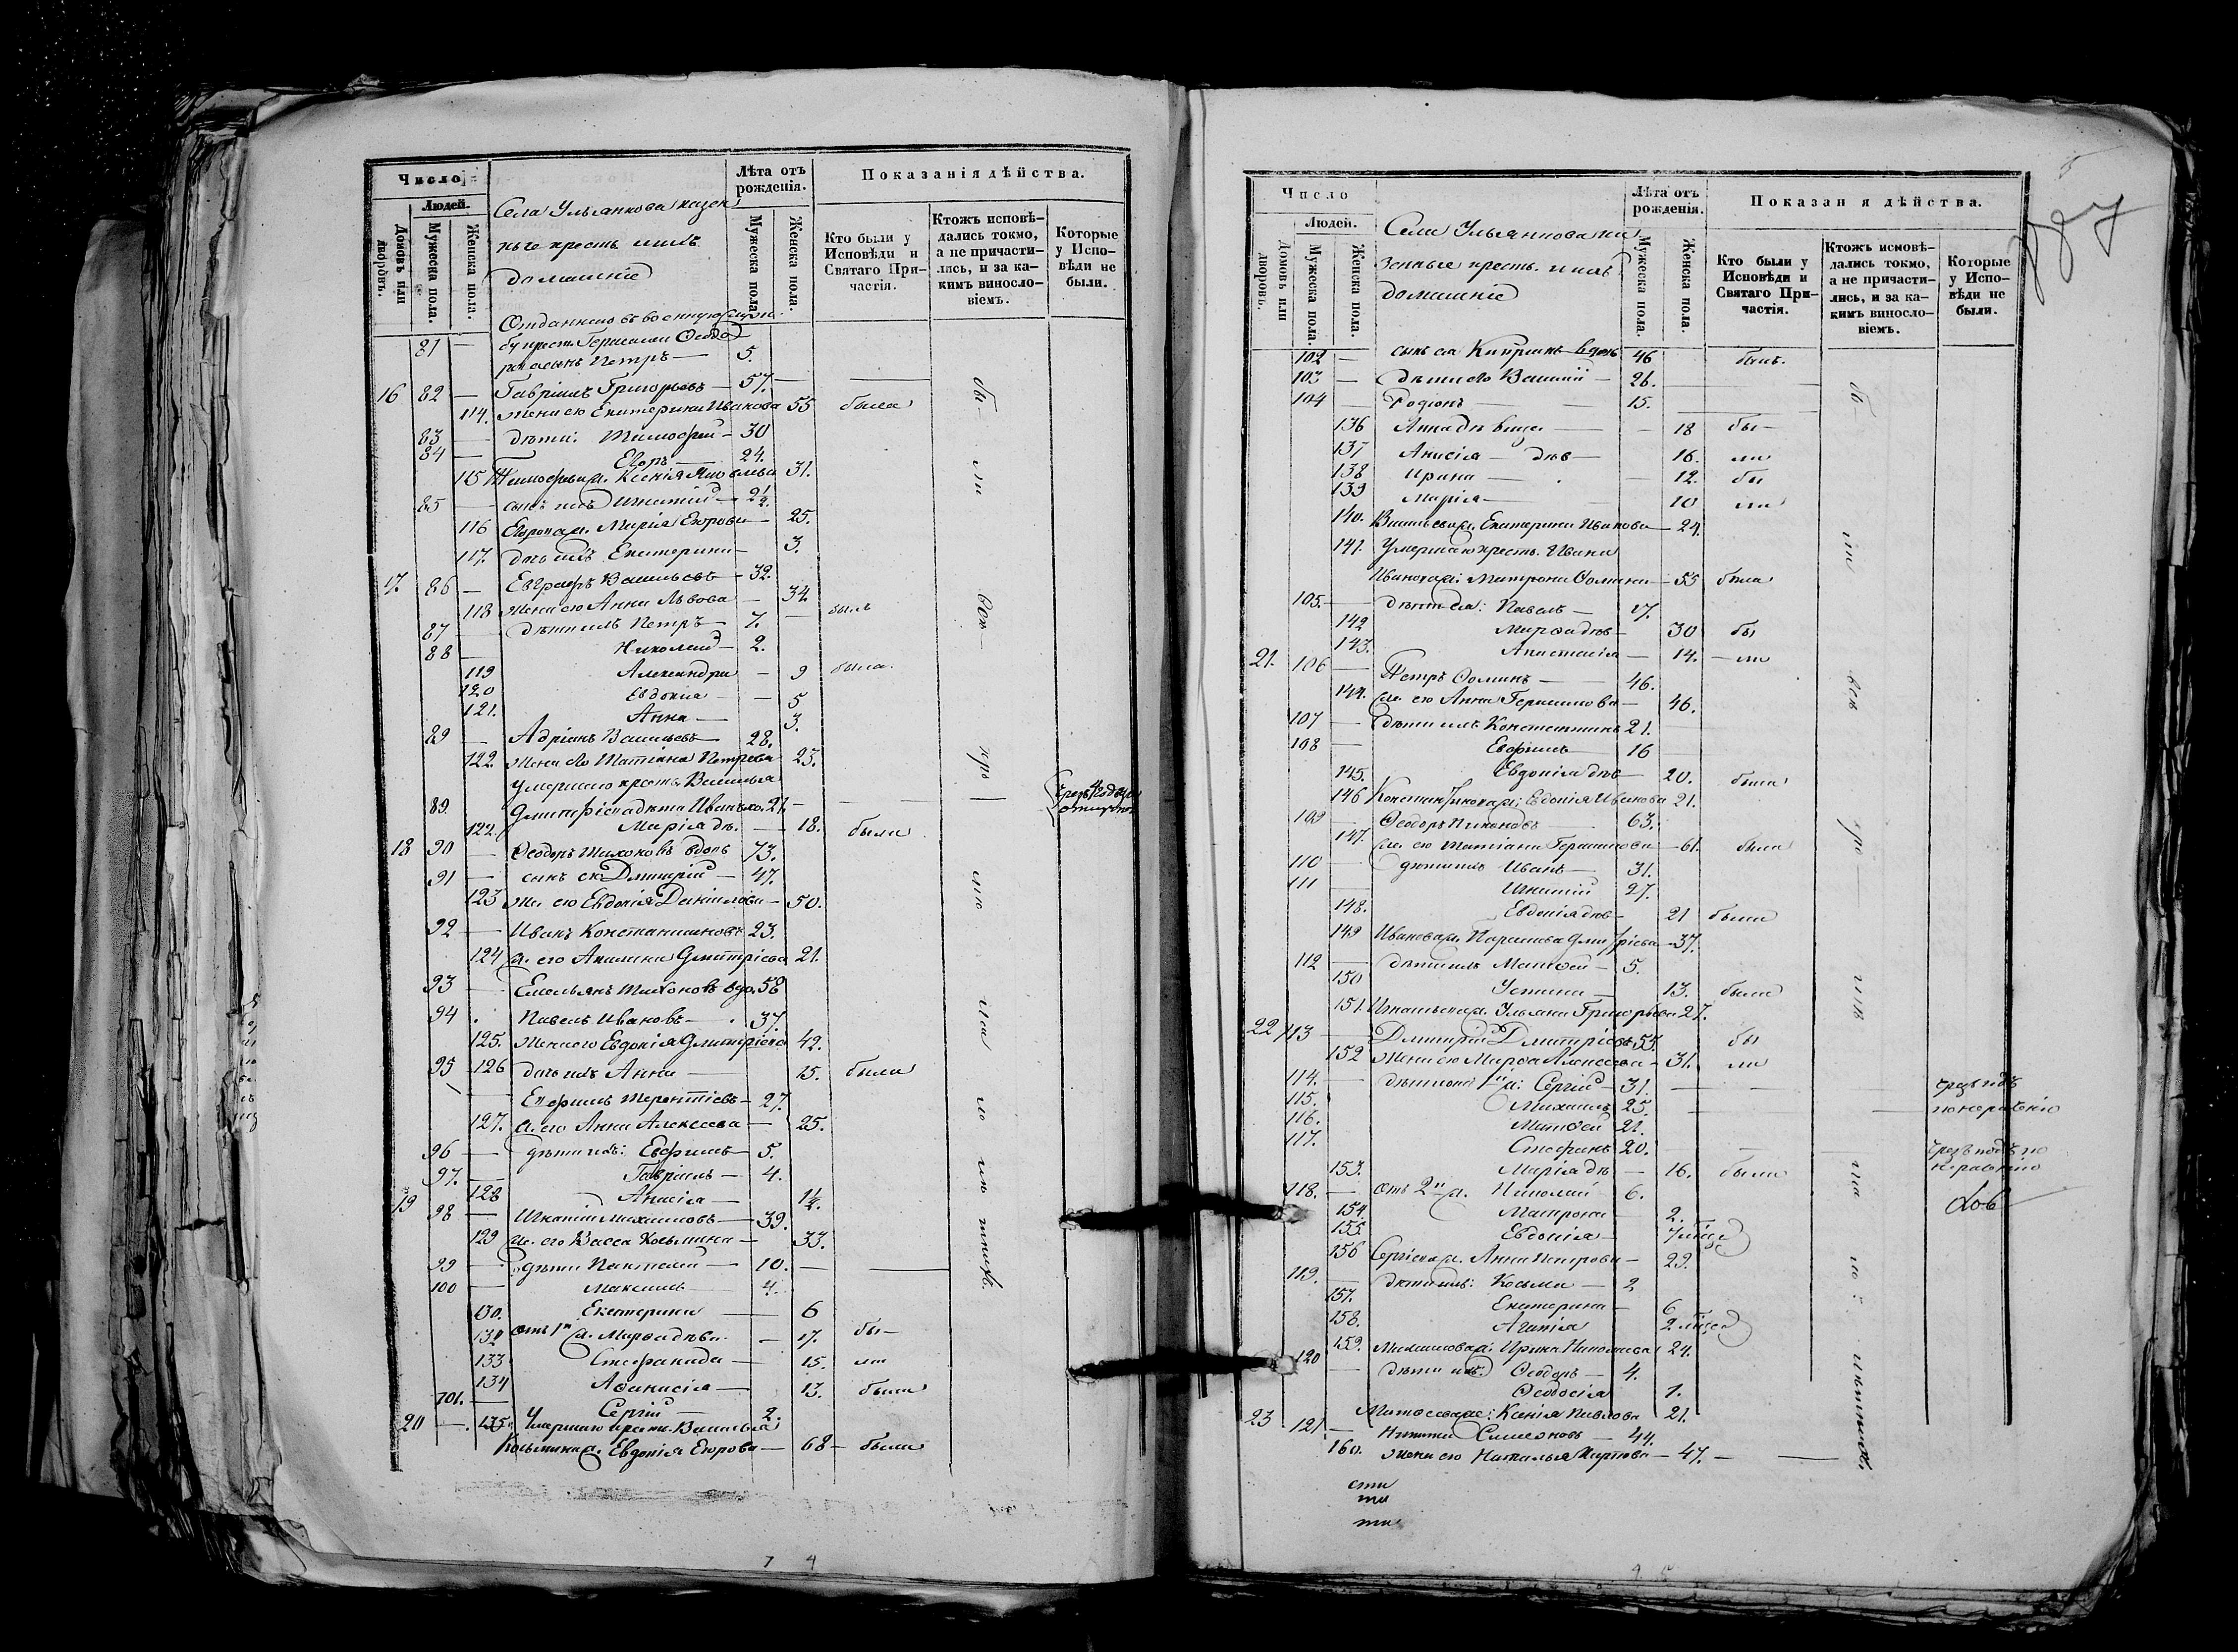 Число
Людей.
Домовъ или дворовъ.
Мужеска пола.
Женска пола.
Села Ульянкова казен
ные крестьяне
домашніе
Лѣта отъ рожденія.
Мужеска пола.
Женска пола.
Показанія дѣйства.
Кто были у Исповѣди и Святаго Причастія.
Ктожъ исповѣдались токмо, а не причастились, и за какимъ винословіемъ.
Которые у Исповѣди не были.
81 — сынъ Петръ — 5.
16 82 — Гавріилъ Григорьевъ — 57.
114. Жена его Екатерина Иванова 55 была
83 — дѣти: Тимофей — 30
84 — Егоръ — 24.
115 Тимофева ж. Ксенія Яковлева 31.
85 — сынъ ихъ Игнатій — 2 1/2.
116 Егорова ж. Марія Егорова — 25.
117. дочь ихъ Екатерина — 3.
17. 86 — Евграфъ Васильевъ — 32.
118 жена его Анна Львова — 34.
87 — дѣти ихъ Петръ — 7. — былъ
88 — Николай — 2.
119 Александра — 9 была.
120 Евдокія — 5
121. Анна — 3.
89 — Адріанъ Васильевъ 28.
122. Жена его Татіана Петрова 23.
Умершаго крест. Василья
89. Дмитріева дѣти Иванъ хо. 21 —
122. Марія дѣ. — 18. были
18 90 — Ѳеодоръ Тихоновъ вдовъ 73.
91 — сынъ его Дмитрій — 47.
123 Же. его Евдокія Даніилова — 50.
92 — Иванъ Константиновъ 23.
124 ж. его Акилина Дмитріева 21.
93 — Емельянъ Тихоновъ вдо. 58
94 . Павелъ Ивановъ — 37.
125. Жена его Евдокія Дмитріева 42.
95 126 дочь ихъ Анна — 15. были
Ефимъ Терентіевъ — 27.
127. ж. его Анна Алексеева — 25.
96 — дѣти ихъ: Евфимъ — 5.
97. — Гавріилъ — 4.
128 Анисія — 1/4.
19 98 — Игнатій Михаиловъ — 39.
129 ж. его Васса Козьмина — 33.
99 — дѣти Пантелей — 10. —
100 — Максимъ — 4.
130. Екатерина — 6
132 отъ 1й ж. Марѳа дѣви. — 17. бы —
133 Стефанида — 15. ли
134 Аѳанасія — 13. были
101. — Сергій — 2.
20 — 135. Умершаго крест. Василья
Козьмина ж. Евдокія Егорова — 68 — была
Число
Людей.
Домовъ или дворовъ.
Мужеска пола.
Женска пола.
Села Ульянкова ка
зенные крест. и ихъ
домашніе
Лѣта отъ рожденія.
Мужеска пола.
Женска пола.
Показанія дѣйства.
Кто были у Исповѣди и Святаго Причастія.
Ктожъ исповѣдались токмо, а не причастились, и за какимъ винословіемъ.
Которые у Исповѣди не были.
102 — сынъ ея Кипріанъ вдовъ 46 былъ.
103 — дѣти его Василій — 26.
104 — Родіонъ — 15.
136 Анна дѣвица — 18 бы —
137 Анисія — дѣв — 16. ли
138 Ирина — 12. бы
139 Марія — 10 ли
140. Васильева ж. Екатерина Иванова — 24.
141. Умершаго крест. Ивана
Иванова ж: Матрона Ѳомина — 55 была
105. — дѣти ея: Павелъ — 17.
142 Марѳа дѣв — 30 бы
143. Анастасія — 14. — ли
21. 106 — Петръ Ѳоминъ — 46.
144. ж. его Анна Герасимова — 46.
107 — дѣти ихъ Константинъ 21.
108 — Евфимъ 16
145. Евдокія дѣв — 20. была
146 Константинова ж: Евдокія Иванова 21.
109 — Ѳеодоръ Никоновъ 63.
147. ж. его Татіана Герасимова — 61. была
110 — дѣти ихъ Иванъ — 31.
111 — Игнатій 27.
148. Евдокія дѣв — 21 была
149 Иванова ж. Парасковья Дмитріева — 37.
112 — дѣти ихъ Матѳей — 5.
150 Устина — 13. была
151. Игнатьева ж. Ульяна Григорьева 27.
22 113 — Дмитрій Дмитріевъ 55. бы
152 Жена его Марѳа Алексеева — 31. ли
114. — дѣти отъ 1й ж: Сергій — 31. —
115. Михаилъ 25.
116. Матѳей 21.
117. Стефанъ 20.
153. Марія дѣ — 16. была
118. — отъ 2й ж. Николай 6.
154. Матрона — 2.
155. Евдокія —
156 Сергіева ж. Анна Петрова — 29.
119. — дѣти ихъ: Козьма — 2
157. Екатерина — 6
158. Агапія
159. Михаилова ж: Ирина Николаева 24.
120 — дѣти ихъ Ѳеодоръ — 4.
Ѳеодосія 1.
Матѳеева ж: Ксенія Павлова 21.
23 121 — Никита Симеоновъ — 44.
160. жена его Наталья Карпова — 47. —